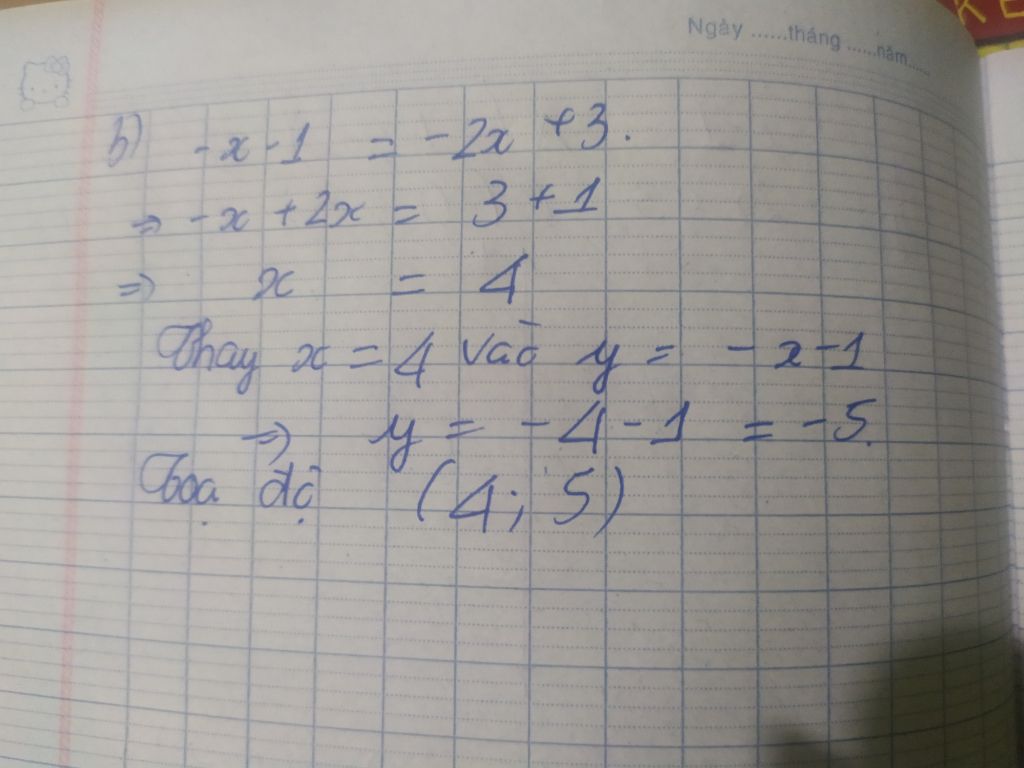 Ngày ......tháng ......năm......
b) -x-1 = -2x +3.
=> -x +2x = 3 +1
=> x = 4
Thay x = 4 vào y = -x-1
=> y = -4-1 = -5.
Toạ độ (4; 5)